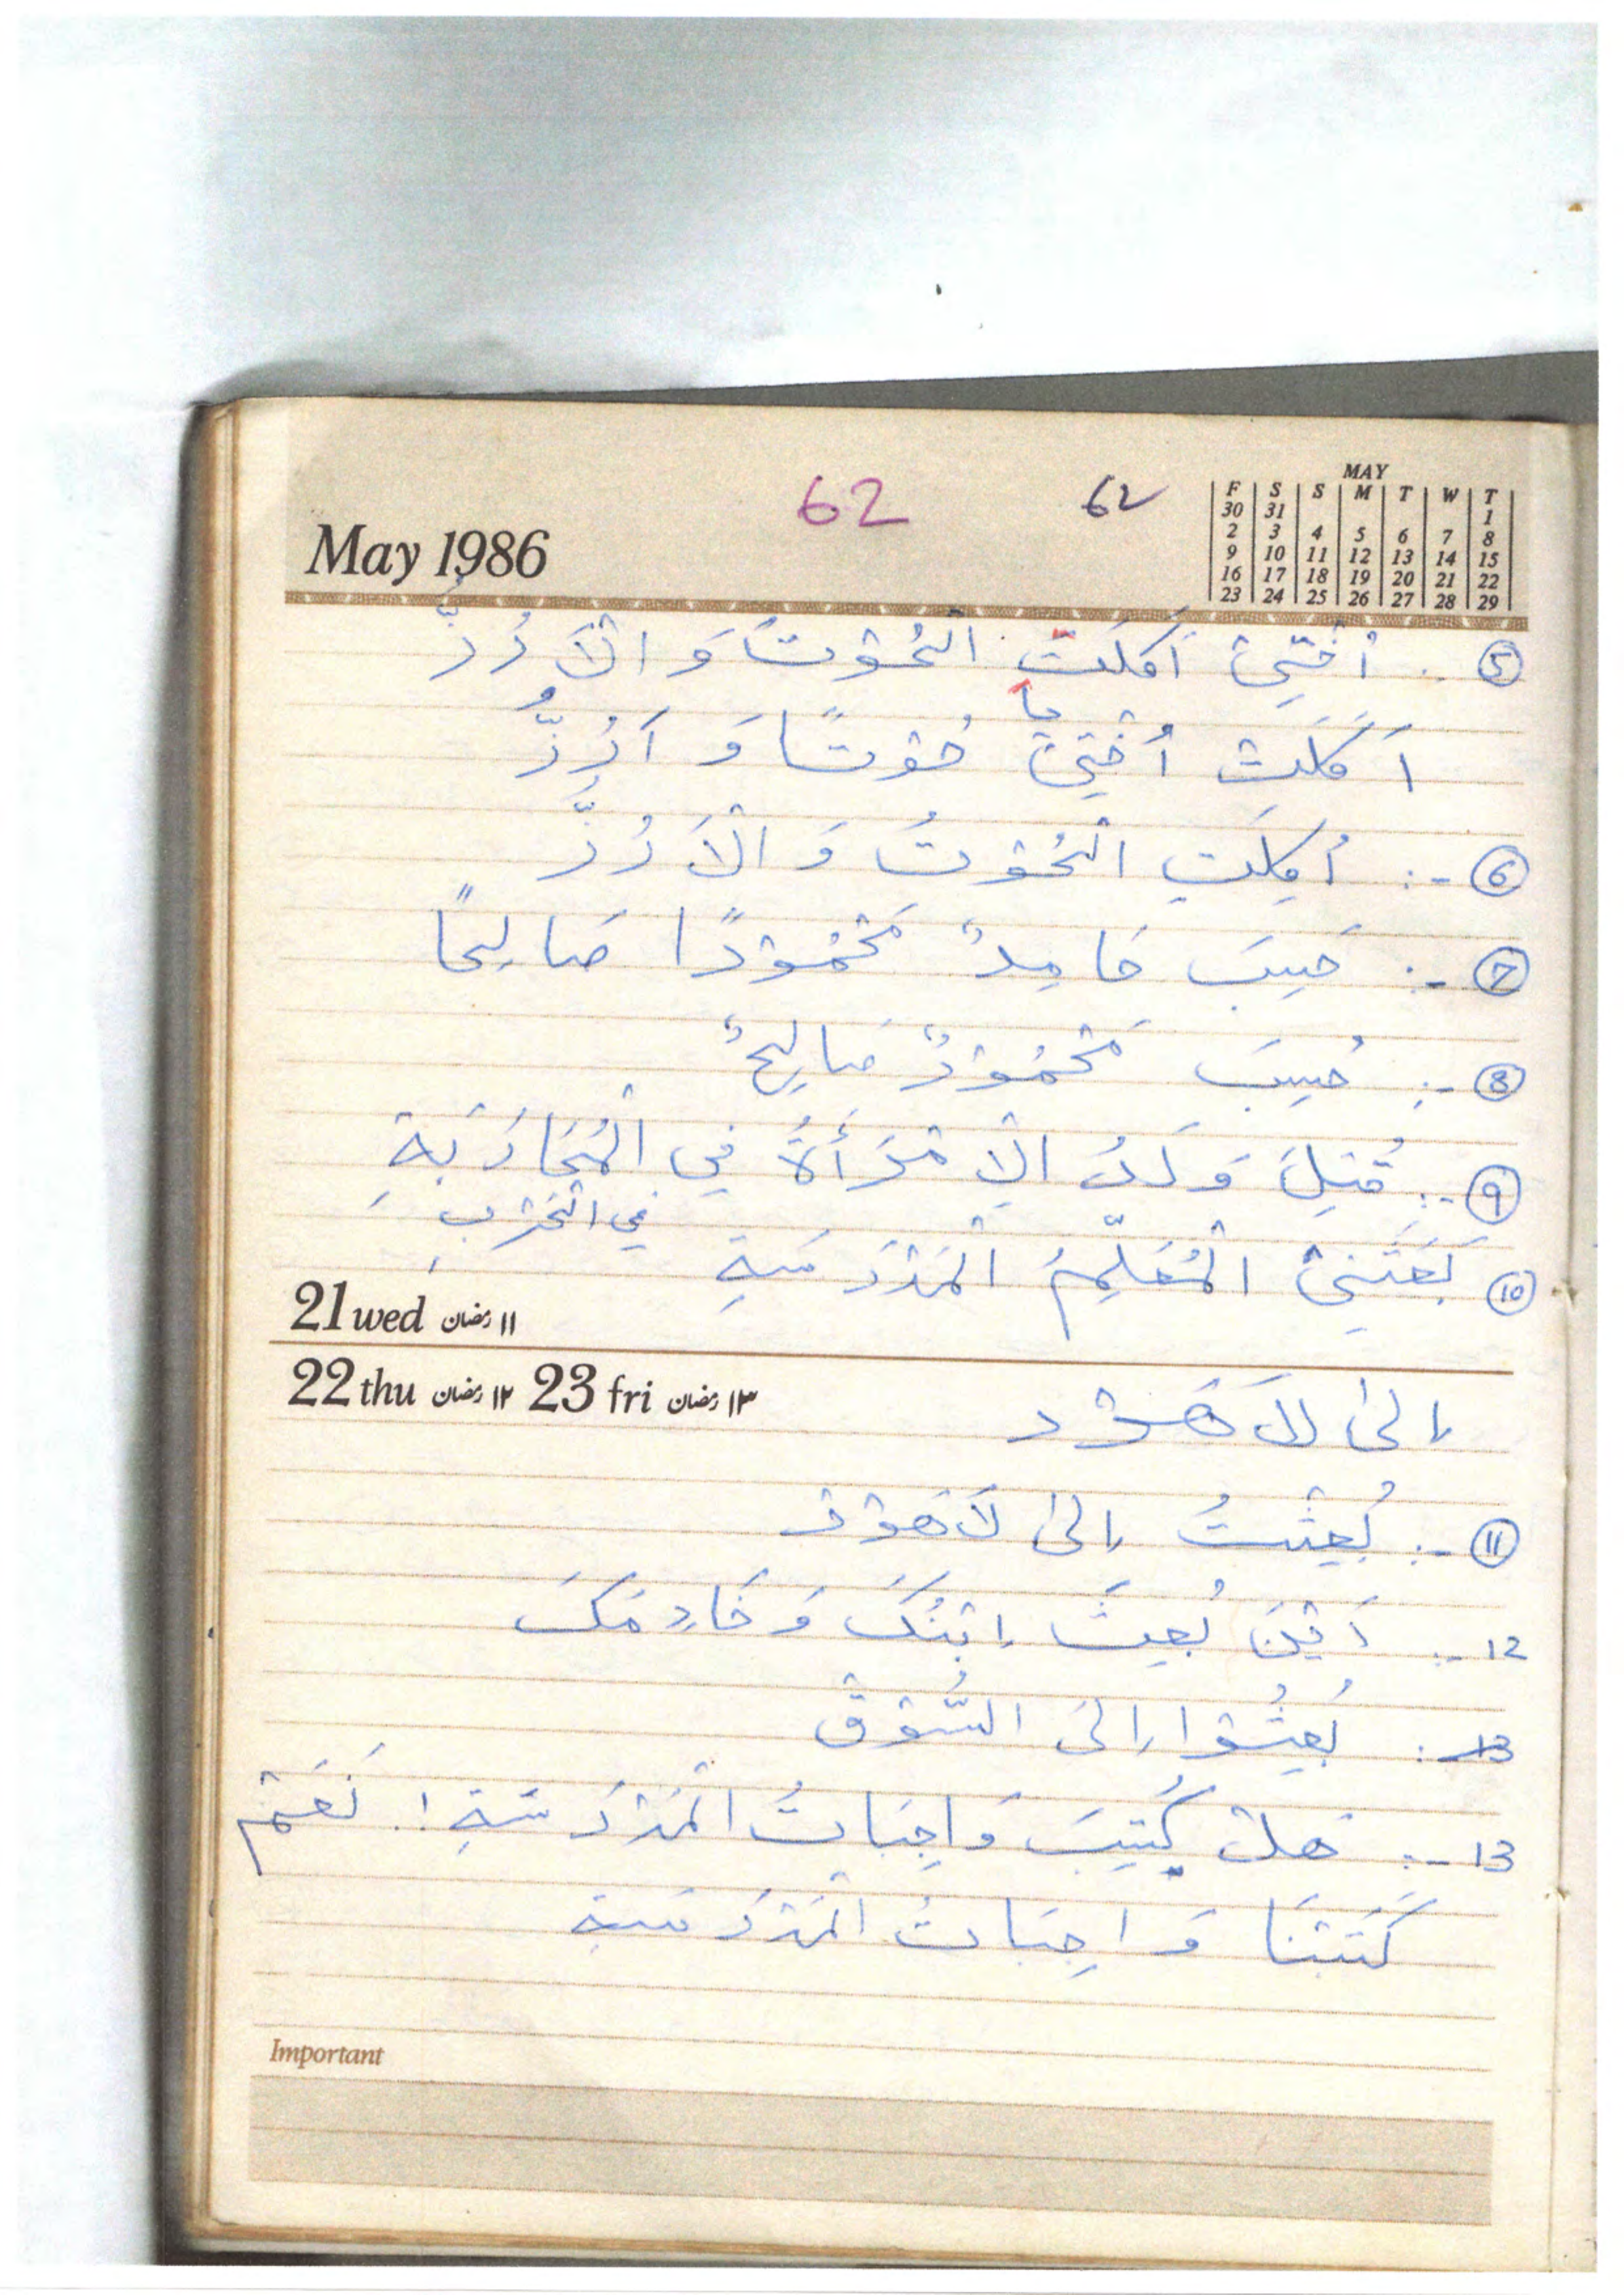 62 62
MAY
F S S M T W T
30 31 1
2 3 4 5 6 7 8
9 10 11 12 13 14 15
16 17 18 19 20 21 22
23 24 25 26 27 28 29
May 1986
٥ .. اُخْتِيْ اَكَلَتِ الْحُوْتَ وَ الْاَرُزَّ
اَكَلَتْ اُخْتِيْ حُوْتًا وَ اَرُزٌّ
٦ -: اُكِلَتِ الْحُوْتُ وَ الْاَرُزُّ
7 -: حَسِبَ حَامِدٌ مَحْمُوْدًا صَالِحًا
8 -: حُسِبَ مَحْمُوْدٌ صَالِحٌ
9 -: قُتِلَ وَلَدُ الْاِمْرَأَةُ فِي الْمُحَارَبَةِ
فِي الْحَرْبِ
10 بَعَثَنِيْ الْمُعَلِّمُ الْمَدْرَسَةِ
21 wed ١١ رمضان
22 thu ١٢ رمضان 23 fri ١٣ رمضان
اِلىٰ لَاهَوْر
11 -: بُعِثْتُ اِلىٰ لَاهَوْر
12 -: اَيْنَ بُعِثَ اِبْنُكَ وَ خَادِمُكَ
13 -: بُعِثُوْا اِلىَ السُّوْقِ
13 -: هَلْ كُتِبَ وَاجِبَاتُ الْمَدْرَسَةِ ! نَعَمْ
كَتَبْنَا وَاجِبَاتُ الْمَدْرَسَةِ
Important